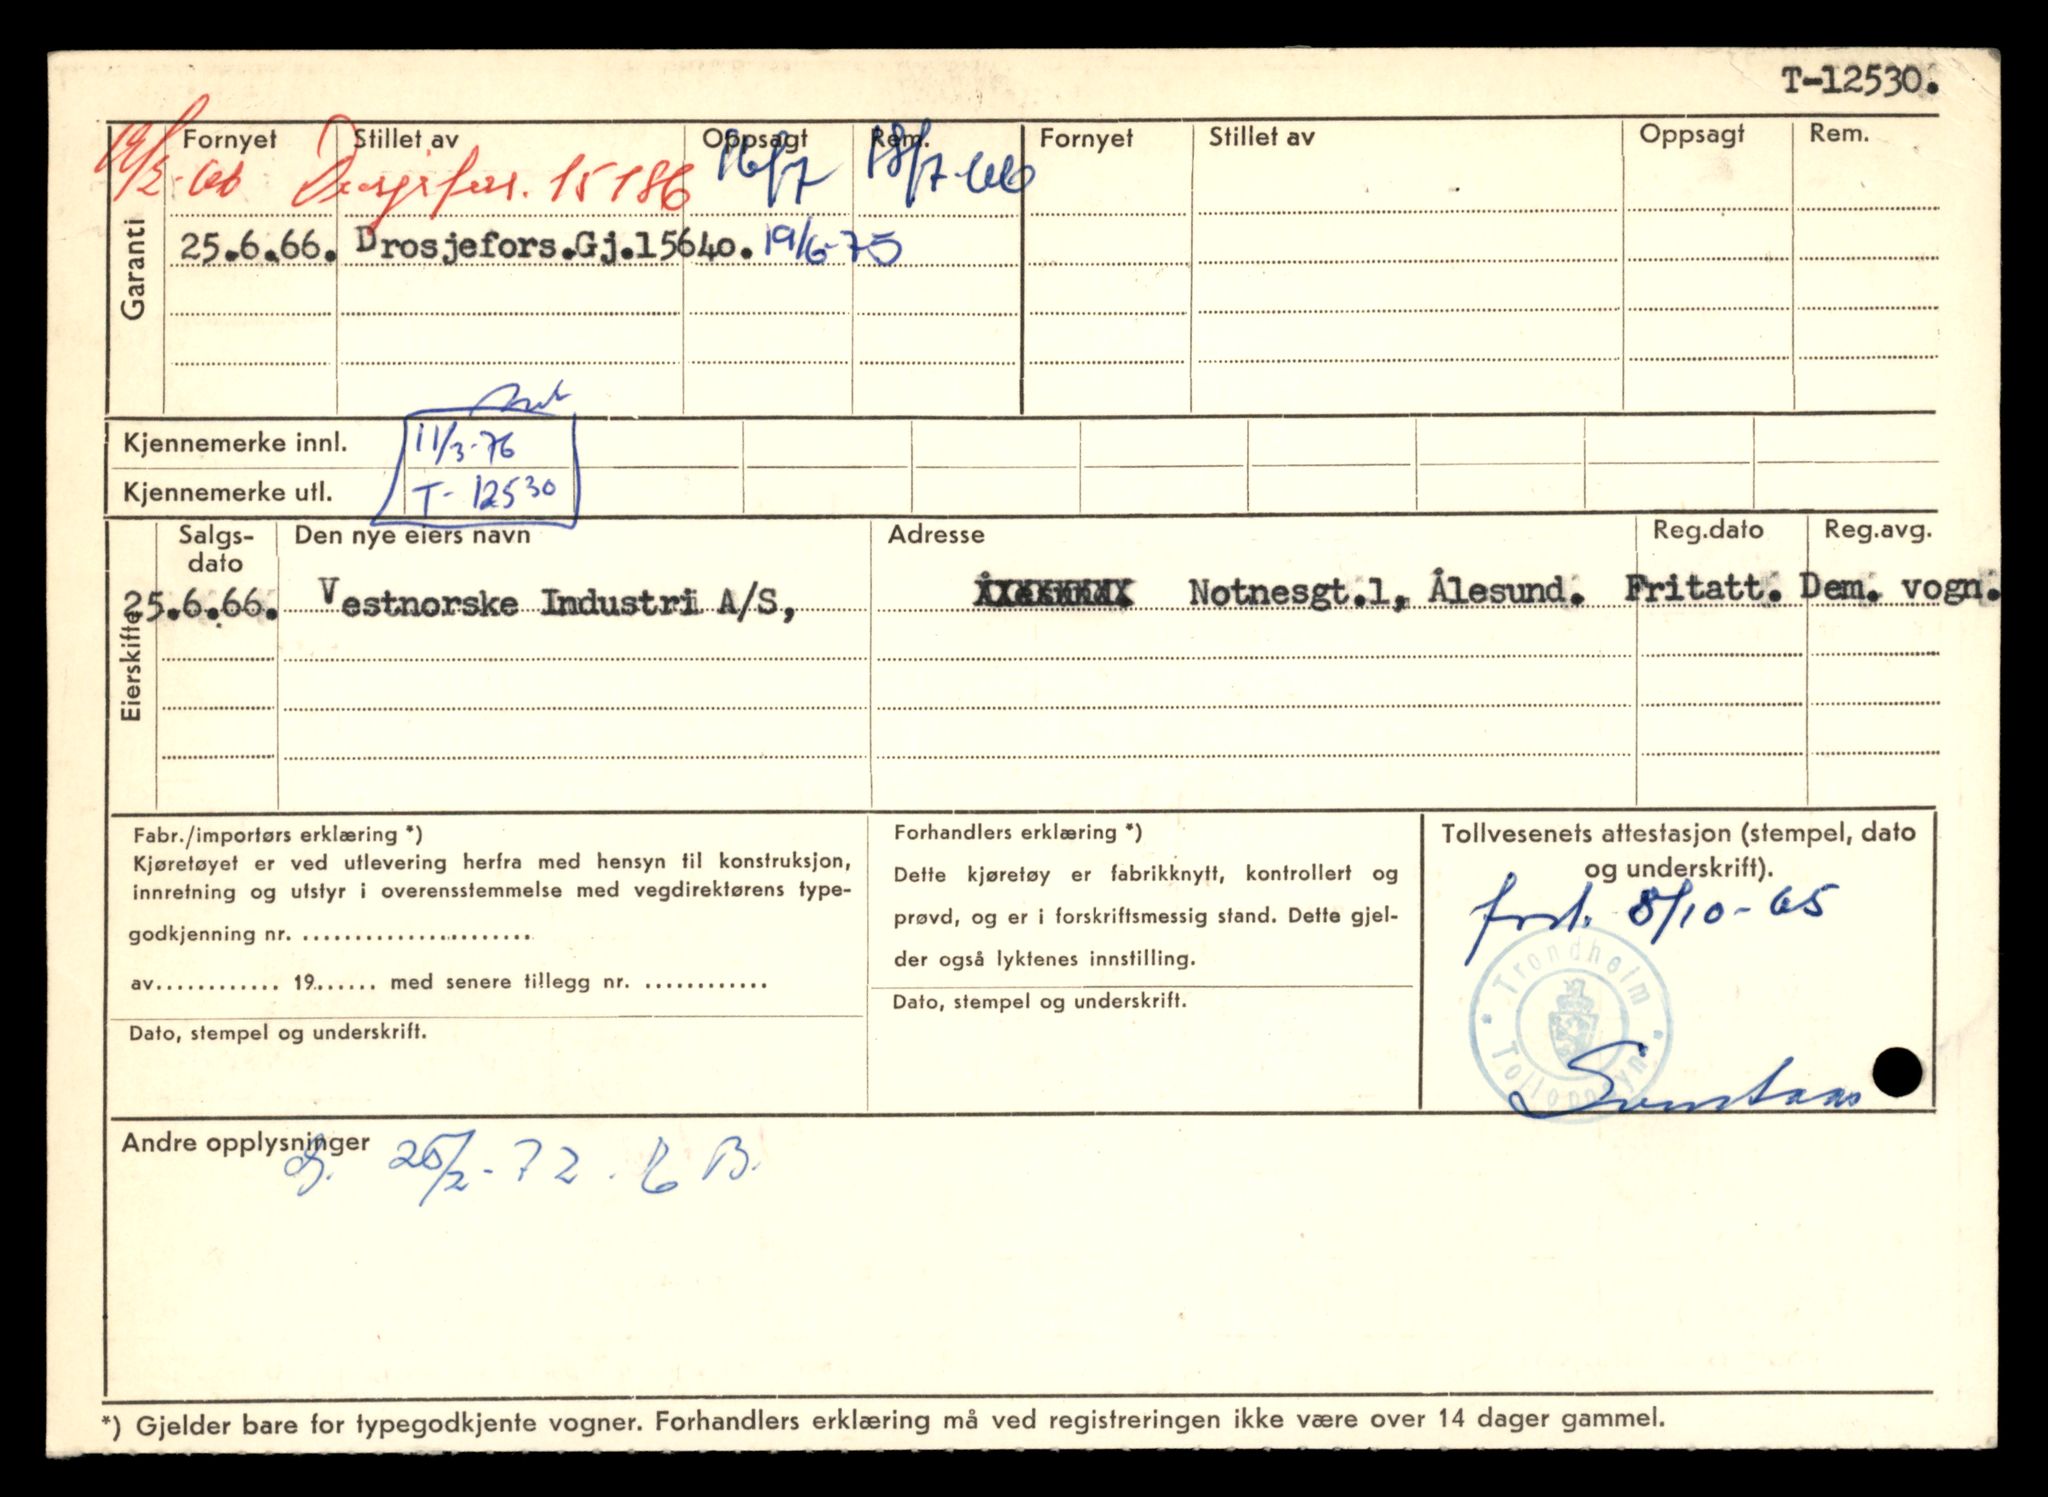 T-12530.
Fornyet Stillet av Oppsagt Rem. Fornyet Stillet av Oppsagt Rem.
15186 16/7 18/7-66
Garanti
25.6.66. Drosjefors.Gj.15640. 19/6-75
Kjennemerke innl. 11/3-76
Kjennemerke utl. T-12530
Eierskifte
Salgs-dato Den nye eiers navn Adresse Reg.dato Reg.avg.
25.6.66. Vestnorske Industri A/S, Notnesgt.1, Ålesund. Fritatt. Dem. vogn.
Fabr./importørs erklæring *)
Kjøretøyet er ved utlevering herfra med hensyn til konstruksjon,
innretning og utstyr i overensstemmelse med vegdirektørens type-
godkjenning nr. ........................
av............ 19...... med senere tillegg nr. ............
Dato, stempel og underskrift.
Forhandlers erklæring *)
Dette kjøretøy er fabrikknytt, kontrollert og
prøvd, og er i forskriftsmessig stand. Dette gjel-
der også lyktenes innstilling.
Dato, stempel og underskrift.
Tollvesenets attestasjon (stempel, dato
og underskrift).
8/10-65
Trondheim
Tolloppsyn
Andre opplysninger
25/2-72. B.
*) Gjelder bare for typegodkjente vogner. Forhandlers erklæring må ved registreringen ikke være over 14 dager gammel.